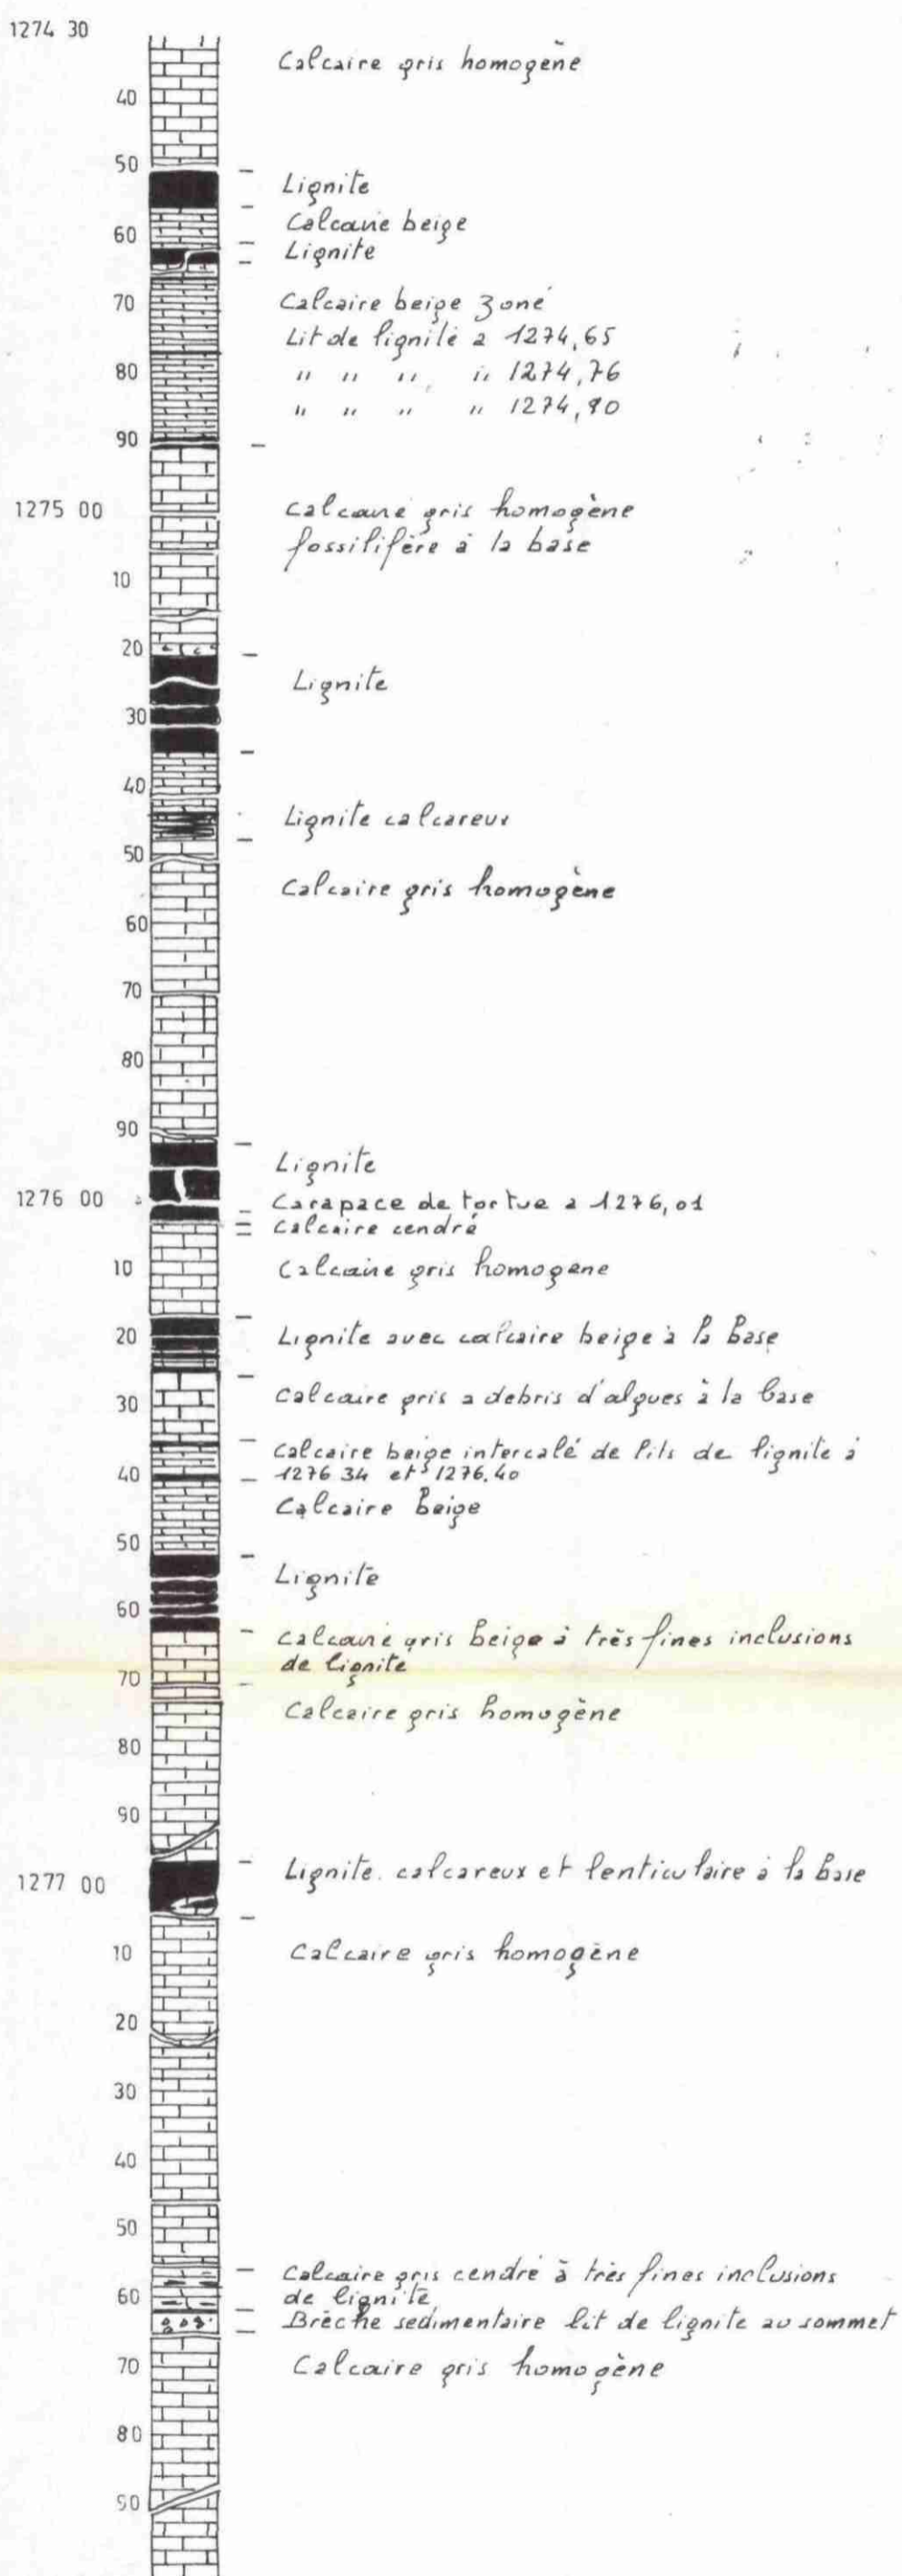 1274 30
Calcaire gris homogène
40
50
Lignite
Calcaire beige
60
Lignite
70
Calcaire beige zoné
Lit de lignite a 1274,65
80
" " " " 1274,76
" " " " 1274,90
90
1275 00
Calcaire gris homogène
fossilifère à la base
10
20
Lignite
30
40
Lignite calcareux
50
Calcaire gris homogène
60
70
80
90
Lignite
1276 00
Carapace de tortue a 1276,01
Calcaire cendré
10
Calcaire gris homogene
20
Lignite avec calcaire beige à la base
30
Calcaire gris a debris d'algues à la base
Calcaire beige intercalé de lits de lignite à
40
1276 34 et 1276,40
Calcaire beige
50
Lignite
60
Calcaire gris beige à très fines inclusions
de lignite
70
Calcaire gris homogène
80
90
Lignite calcareux et lenticulaire à la base
1277 00
10
Calcaire gris homogène
20
30
40
50
Calcaire gris cendré à très fines inclusions
60
de lignite
Brèche sedimentaire lit de lignite au sommet
70
Calcaire gris homogène
80
90